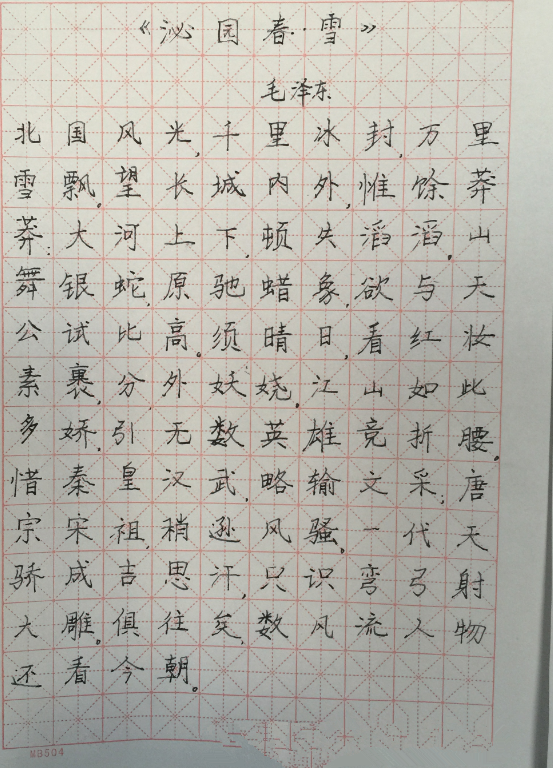 《沁园春·雪》
毛泽东
北国风光,千里冰封,万里
雪飘。望长城内外,惟馀莽
莽;大河上下,顿失滔滔。山
舞银蛇,原驰蜡象,欲与天
公试比高。须晴日,看红妆
素裹,分外妖娆。江山如此
多娇,引无数英雄竞折腰。
惜秦皇汉武,略输文采;唐
宗宋祖,稍逊风骚。一代天
骄成吉思汗,只识弯弓射
大雕。俱往矣,数风流人物
还看今朝。
MB504